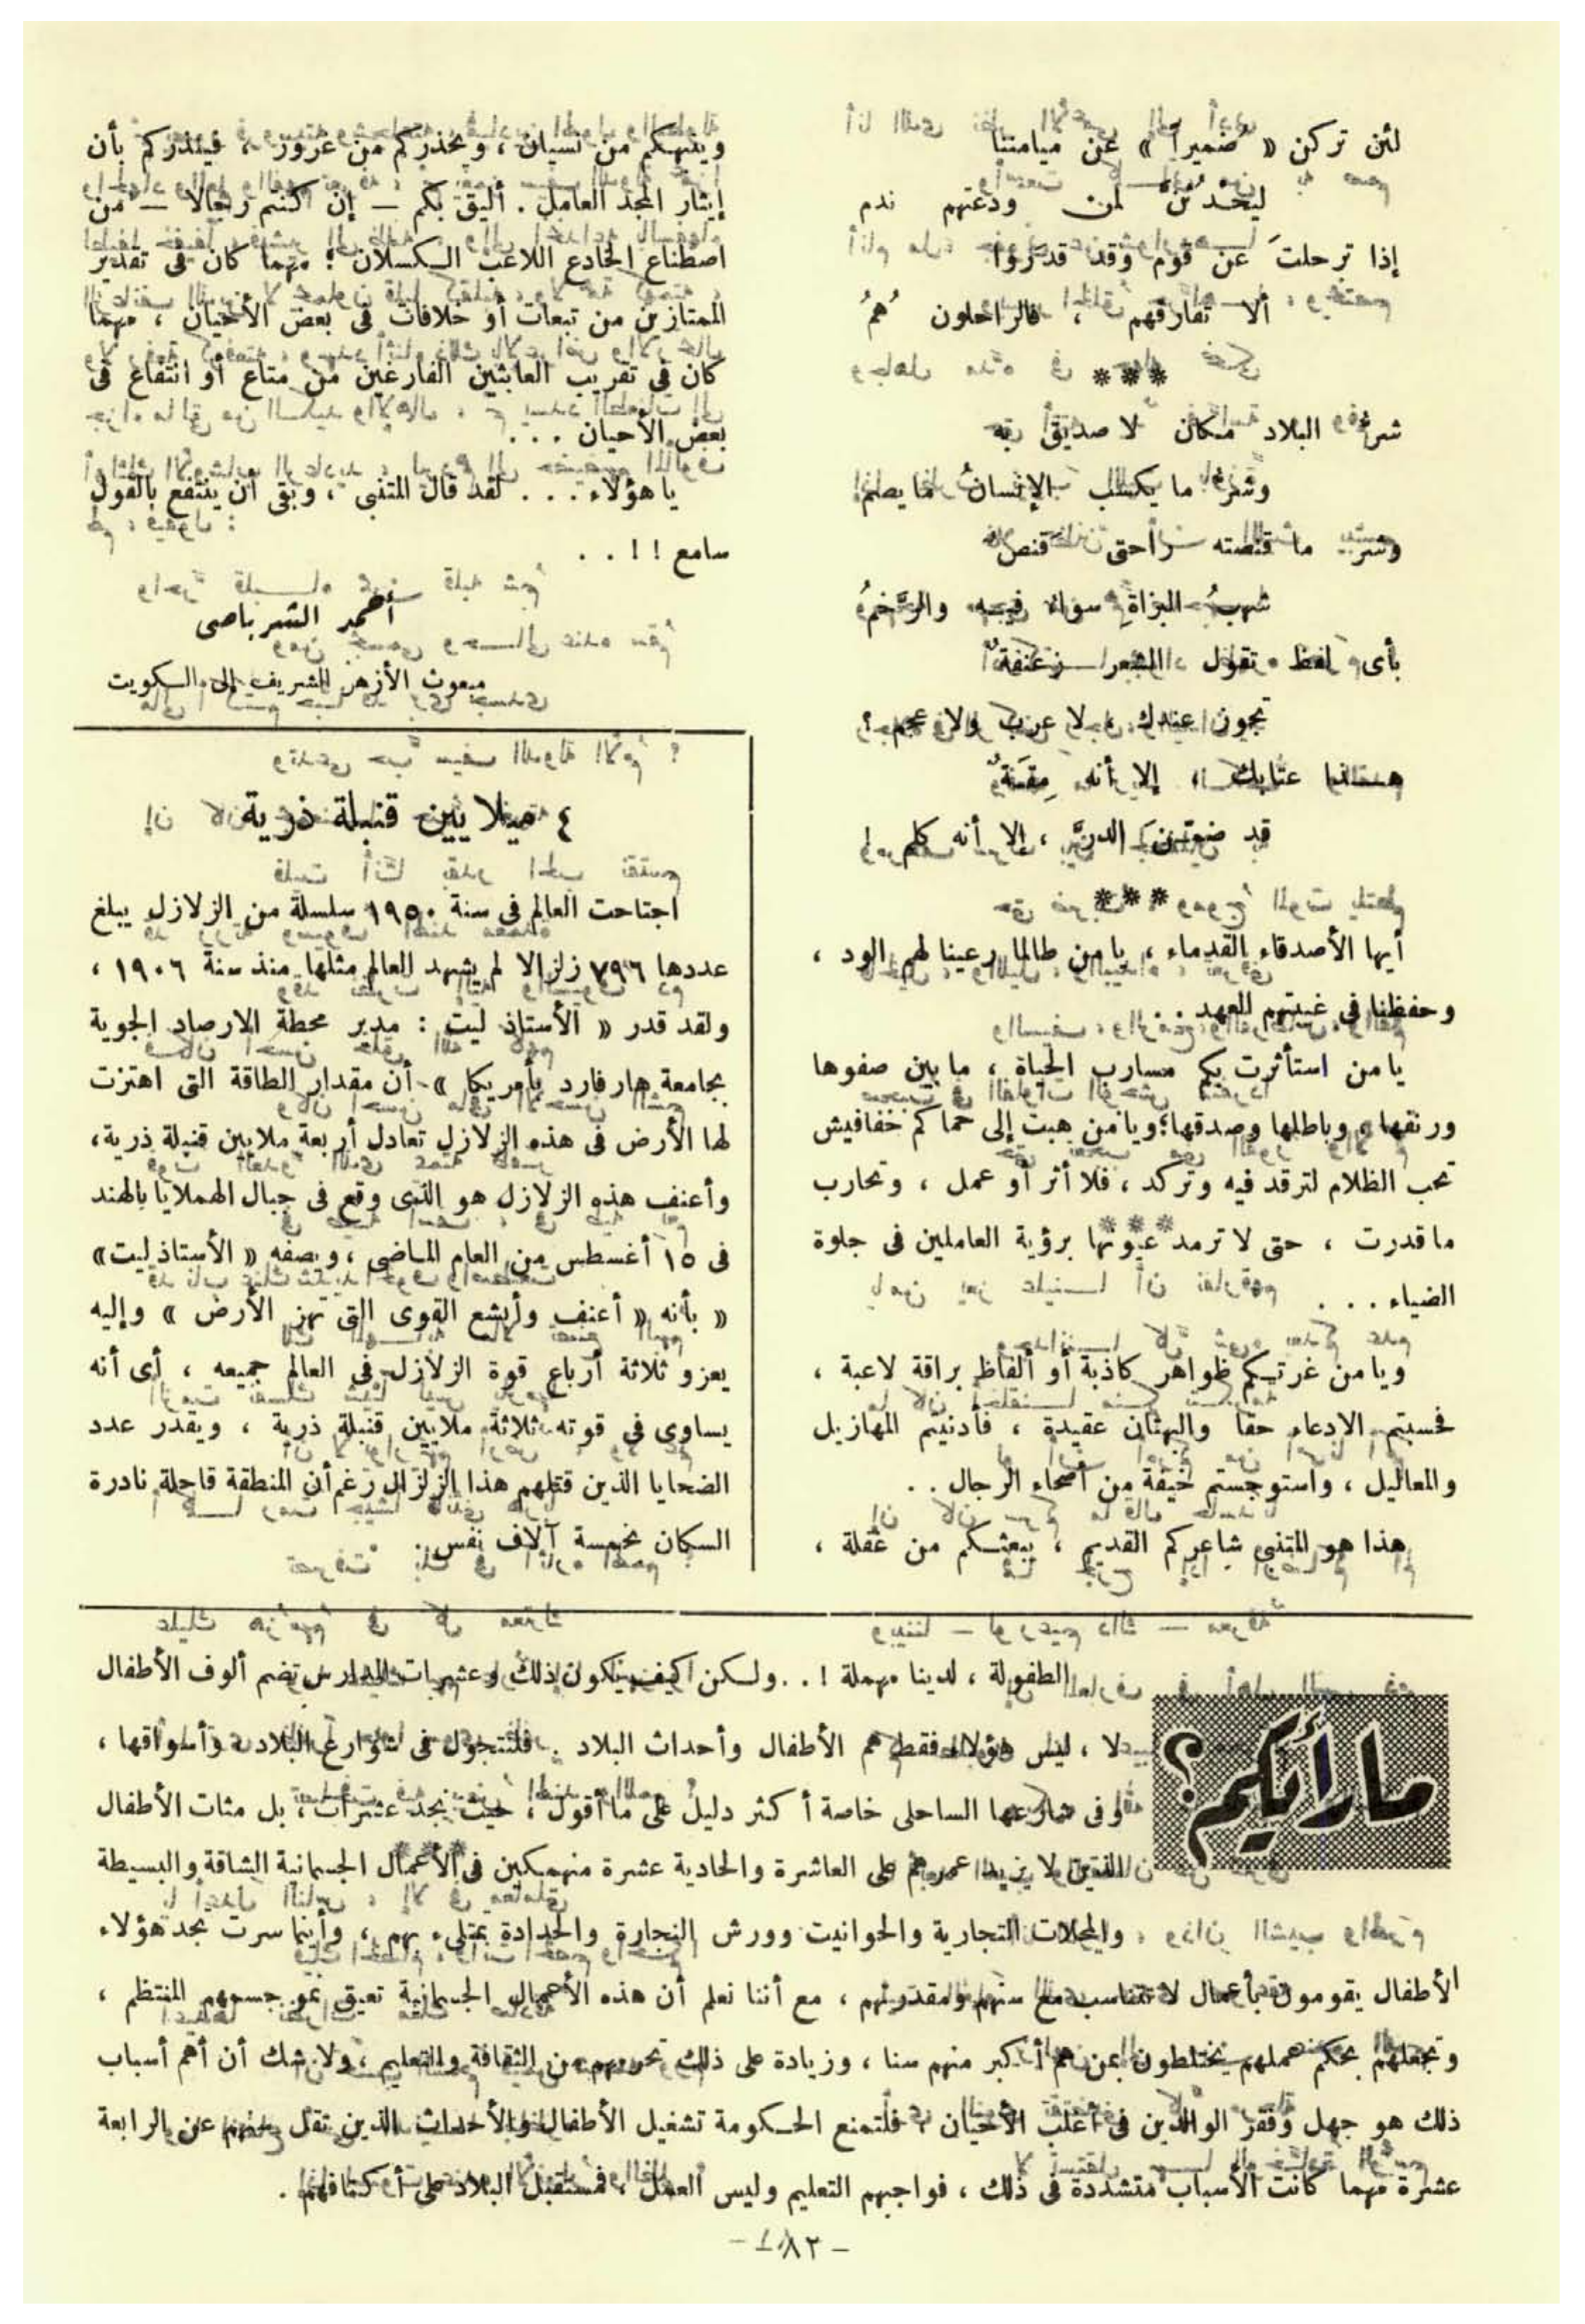 لئن تركن « ضميراً » عن ميامننا
ليحْدُثَن لمن ودعتهم ندم
إذا ترحلتَ عن قوم وقد قدروا
ألا تفارقهم ، فالراحلون هُمُ
***
شر البلاد مكان لا صديق به
وشر ما يكسب الإنسانُ ما يصم
وشر ما قنصته راحتى قنص
شهبُ البزاةِ سواء فيه والرَّخمُ
بأى لفظ تقول الشعر زعنفةٌ
تجوز عندك ، لا عرب ولا عجم ؟
هذا عتابك ، إلا أنه مِقَةٌ
قد ضمِّنَ الدرَّ ، إلا أنه كلم !
***
أيها الأصدقاء القدماء ، يا من طالما رعينا لهم الود ،
وحفظنا فى غيبتهم العهد . .
يا من استأثرت بكم مسارب الحياة ، ما بين صفوها
ورنقها ، وباطلها وصدقها ؛ ويا من هبت إلى حماكم خفافيش
تحب الظلام لترقد فيه وتركد ، فلا أثر أو عمل ، وتحارب
ما قدرت ، حتى لا ترمد عيونها برؤية العاملين فى جلوة
الضياء . . .
ويا من غرتكم ظواهر كاذبة أو ألفاظ براقة لاعبة ،
فحسبتم الادعاء حقا والبهتان عقيدة ، فأدنيتم المهازيل
والمعاليل ، واستوجستم خيفة من أصحاء الرجال . .
هذا هو المتنبى شاعركم القديم ، يبعثكم من غفلة ،
وينبهكم من نسيان ، ويحذركم من غرور ، فينذركم بأن
إيثار المجد العامل . أليق بكم — إن كنتم رجالا — من
اصطناع الخادع اللاعب الكسلان ؛ مهما كان فى تقدير
الممتازين من تبعات أو خلافات فى بعض الأحيان ، مهما
كان فى تقريب العابثين الفارغين من متاع أو انتفاع فى
بعض الأحيان . . .
يا هؤلاء . . . لقد قال المتنبى ، وبقى أن ينتفع بالقول
سامع ! ! . .
أحمد الشرباصى
مبعوث الأزهر الشريف إلى الكويت
٤ ميلايين قنبلة ذرية
اجتاحت العالم فى سنة ١٩٥٠ سلسلة من الزلازل يبلغ
عددها ٧٩٦ زلزالا لم يشهد العالم مثلها منذ سنة ١٩٠٦ ،
ولقد قدر « الأستاذ ليت : مدير محطة الارصاد الجوية
بجامعة هارفارد بأمريكا » أن مقدار الطاقة التى اهتزت
لها الأرض فى هذه الزلازل تعادل أربعة ملايين قنبلة ذرية ،
وأعنف هذه الزلازل هو الذى وقع فى جبال الهملايا بالهند
فى ١٥ أغسطس من العام الماضى ، ويصفه « الأستاذ ليت »
« بأنه « أعنف وأبشع القوى التى تهز الأرض » وإليه
يعزو ثلاثة أرباع قوة الزلازل فى العالم جميعه ، أى أنه
يساوى فى قوته ثلاثة ملايين قنبلة ذرية ، ويقدر عدد
الضحايا الذين قتلهم هذا الزلزال رغم أن المنطقة قاحلة نادرة
السكان بخمسة آلاف نفس .
ما رأيكم ؟
الطفولة ، لدينا مهملة ! . . ولكن كيف يكون ذلك وعشرات المدارس تضم ألوف الأطفال
لا ، ليس هؤلاء فقط هم الأطفال وأحداث البلاد . فلنتجول فى شوارع البلاد وأسواقها ،
وفى شارعها الساحلى خاصة أكثر دليل على ما أقول ، حيث نجد عشرات ، بل مئات الأطفال
الذين لا يزيد عمرهم على العاشرة والحادية عشرة منهمكين فى الأعمال الجسمانية الشاقة والبسيطة
والمحلات التجارية والحوانيت وورش النجارة والحدادة تمتلىء بهم ، وأينما سرت تجد هؤلاء
الأطفال يقومون بأعمال لا تتناسب مع سنهم ومقدرتهم ، مع أننا نعلم أن هذه الأعمال الجسمانية تعيق نمو جسمهم المنتظم ،
وتجعلهم بحكم عملهم يختلطون بمن هم أكبر منهم سنا ، وزيادة على ذلك تحرمهم من الثقافة والتعليم ، ولا شك أن أهم أسباب
ذلك هو جهل وفقر الوالدين فى أغلب الأحيان ، فلتمنع الحكومة تشغيل الأطفال والأحداث الذين تقل سنهم عن الرابعة
عشرة مهما كانت الأسباب متشددة فى ذلك ، فواجبهم التعليم وليس العمل ، فمستقبل البلاد على أكتافهم .